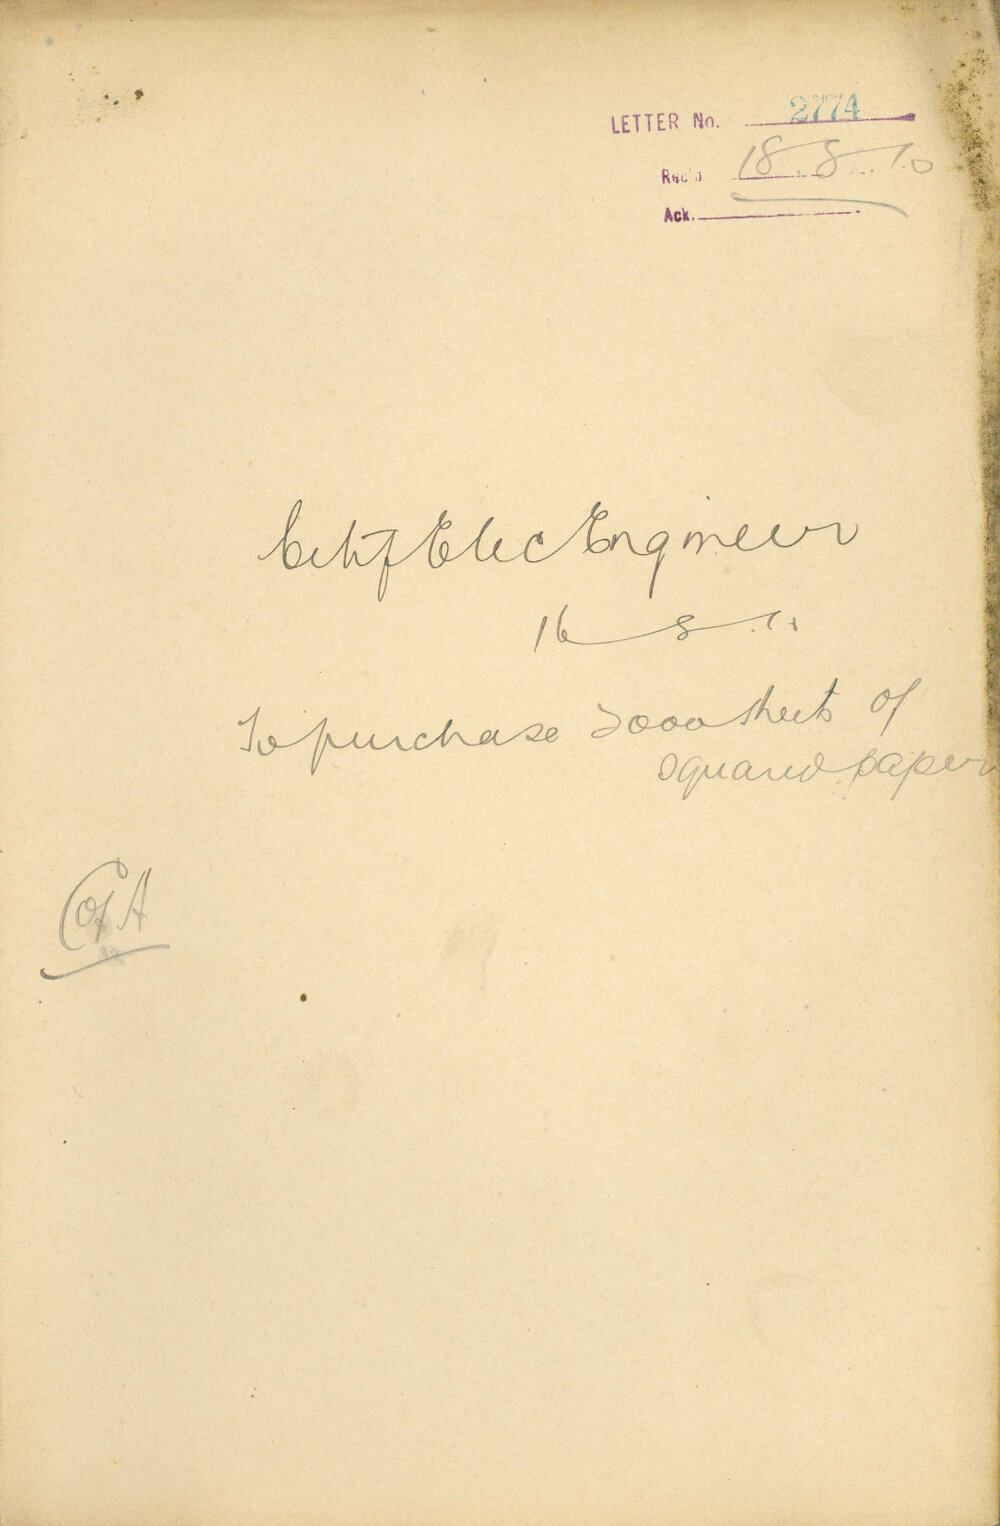 LETTER No. 2774
Rec'd 18.8.10
Ack.
Elec Engineer
16 8
To purchase 3000 sheets of
squared paper
C of A